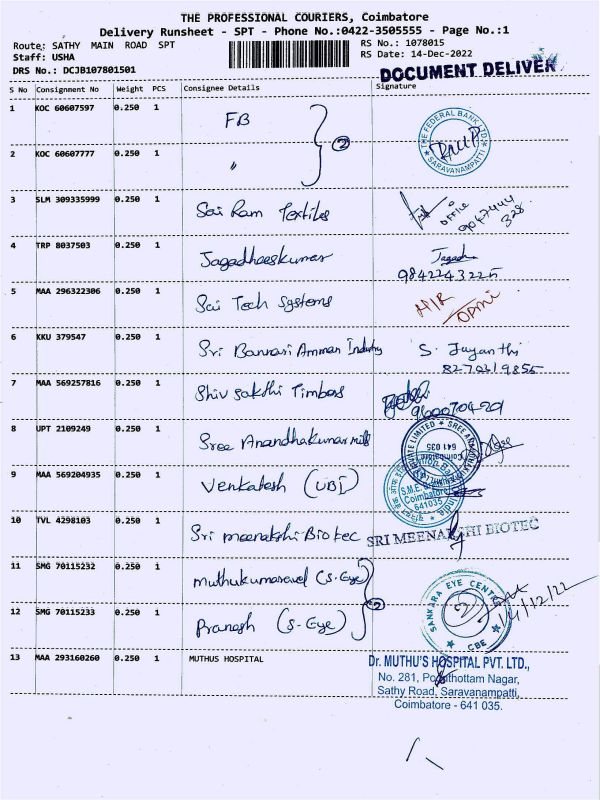 THE PROFESSIONAL COURIERS, Coimbatore
Delivery Runsheet - SPT - Phone No.:0422-3505555 - Page No.:1
Route: SATHY MAIN ROAD SPT
RS No.: 1078015
Staff: USHA
RS Date: 14-Dec-2022
DRS No.: DCJB107801501
DOCUMENT DELIVER
S No Consignment No Weight PCS Consignee Details Signature
1 KOC 60607597 0.250 1 FB
THE FEDERAL BANK LTD. SARAVANAMPATTI
2 KOC 60607777 0.250 1 " 2
3 SLM 309335999 0.250 1 Sai Ram Textiles
OFFICE
9047444
328
4 TRP 8037503 0.250 1 Jagadheeskumar Jagadh
9842243225
5 MAA 296322306 0.250 1 Sai Tech Systems
6 KKU 379547 0.250 1 Sri Bannari Amman Industry S. Jayanthi
8270319855
7 MAA 569257816 0.250 1 Shiv Sakthi Timbers
9600704201
8 UPT 2109249 0.250 1 Sree Anandhakumar mills
Coimbatore 641 035
9 MAA 569204935 0.250 1 Venkatesh (UBI)
S.M.E
Coimbatore
641035
10 TVL 4298103 0.250 1 Sri meenakshi Biotec SRI MEENAKSHI BIOTEC
11 SMG 70115232 0.250 1 muthukumaravel (S.Eye)
12 SMG 70115233 0.250 1 Pranesh (S-Eye) 2
SANKARA EYE CENTRE CBE
14/12/22
13 MAA 293160260 0.250 1 MUTHUS HOSPITAL
Dr. MUTHU'S HOSPITAL PVT. LTD.,
No. 281, Poothottam Nagar,
Sathy Road, Saravanampatti,
Coimbatore - 641 035.